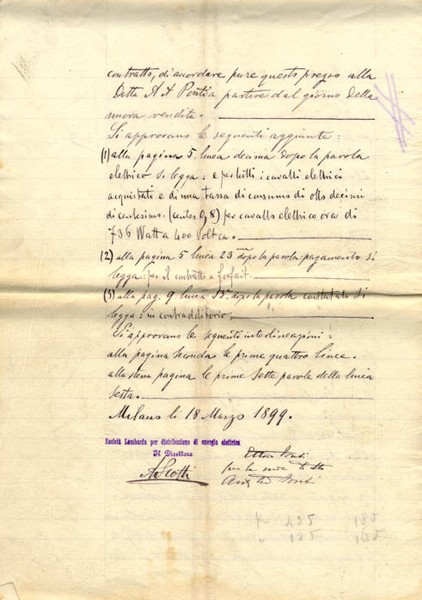 contratto, di accordare pure questo prezzo alla
Ditta A A Ponti a partire dal giorno della
nuova vendita.
Si approvano le seguenti aggiunte:
(1) alla pagina 5 linea decima dopo la parola
elettrico si legga: e per tutti i cavalli elettrici
acquistati e di una tassa di consumo di otto decimi
di centesimo (centes 0,8) per cavallo elettrico ora di
736 Watt a 400 Volt ca.
(2) alla pagina 5 linea 23 dopo la parola: pagamento si
legga: per il contratto a forfait.
(3) alla pag. 9 linea 13 dopo la parola constatato si
legga: in contradditorio;
Si approvano le seguenti interlineazioni:
alla pagina seconda le prime quattro linee.
alla stessa pagina le prime sette parole della linea
sesta.
Milano li 18 Marzo 1899.
Società Lombarda per distribuzione di energia elettrica
Il Direttore
A Scotti
Ettore Ponti
per la mia
Ponti
495 180
125 165